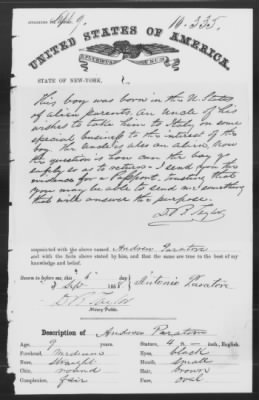 Sept 9.
10.335
UNITED STATES OF AMERICA.
STATE OF NEW-YORK,
This boy was born in the U. States
of alien parents, an uncle of his
wishes to take him to Italy on some
special business to the interest of the
boy. The Uncle is also an alien. Now
the question is how can the boy go
so as to return. I send you the
evidence for a Passport, trusting that
you may be able to send on something
that will answer the purpose.
D. P. Taylor
acquainted with the above named Andrew Paratore
and with the facts above stated by him, and that the same are true to the best of my
knowledge and belief.
Sworn to before me, this 6 day
Sept 1888
Antonio Paratore
D. P. Taylor
Notary Public.
Description of Andrew Paratore
Age, 9 years
Stature, 4 2 inch, English.
Forehead, medium
Eyes, black
Nose, straight
Mouth, small
Chin, round
Hair, brown
Complexion, fair
Face, oval